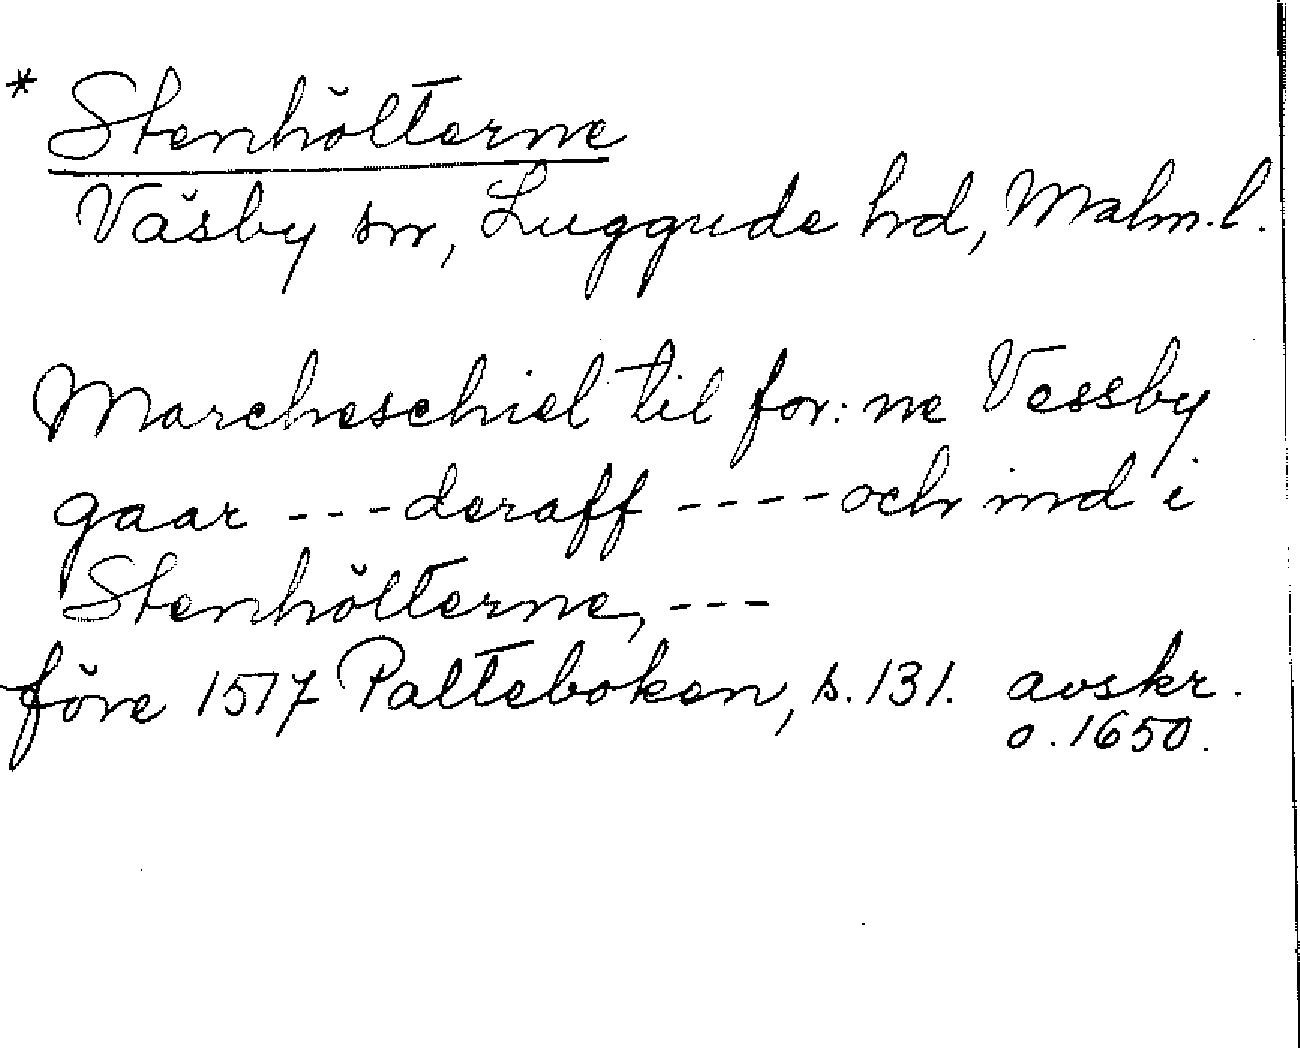 * Stenhölterne
Väsby sn, Luggude hd, Malm. l.
Marcheschiel til for: ne Vessby
gaar --- deraff ---- och ind i
Stenhölterne, ---
före 1517 Palteboken, s. 131. avskr.
o. 1650.